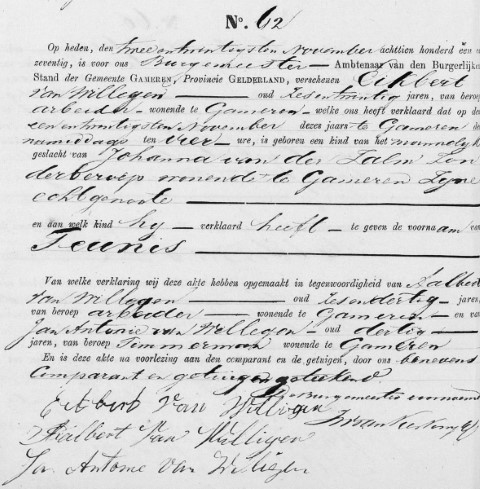 No. 62
Op heden, den twee en twintigsten November achttien honderd een en
zeventig, is voor ons Burgemeester Ambtenaar van den Burgerlijken
Stand der Gemeente GAMEREN, Provincie GELDERLAND, verschenen Eikbert
van Willegen oud zesentwintig jaren, van beroep
arbeider wonende te Gameren welke ons heeft verklaard dat op de
een en twintigsten November dezes jaars te Gameren de
namiddags ten vier ure, is geboren een kind van het mannelyk
geslacht van Johanna van der Zalm zon
der beroep wonende te Gameren zyne
echtgenoote
en aan welk kind hy verklaard heeft te geven de voornaam van
Teunis
Van welke verklaring wij deze akte hebben opgemaakt in tegenwoordigheid van Aalbert
van Willegen oud zesendertig jaren
van beroep arbeider wonende te Gameren en van
Jan Antonie van Willegen oud dertig
jaren, van beroep Timmerman wonende te Gameren
En is deze akte na voorlezing aan den comparant en de getuigen, door ons benevens
Comparant en getuigen geteekend.
De Burgemeester voornoemd
Eikbert van Willigen
Aalbert van Willigen
Jan Antonie van Willigen